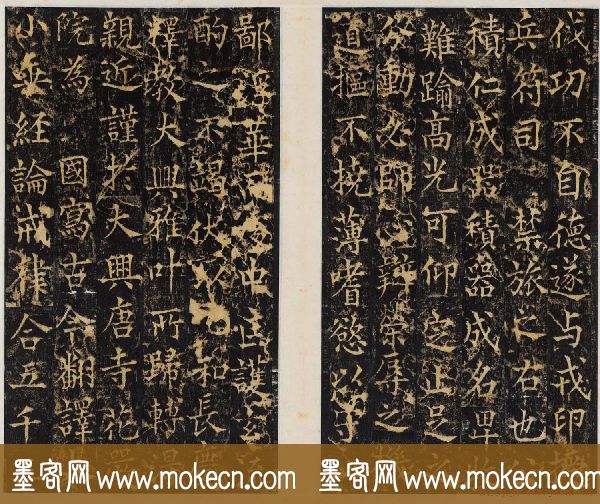 伐功不自德遂与戎印
兵符司 禁旅之右也
積仁成器積器成名
難踰高光可仰定止足
動必師心辨榮辱之
道樞不撓薄嗜慾以
鄙浮華 冲 護
酌之不竭伏 和長
釋教大興雅叶所歸轉
親近謹於大興唐寺花
院為 國寫古今翻譯
小乘經論戒律合五千
墨客网 www.mokecn.com 墨客网 www.mokecn.com